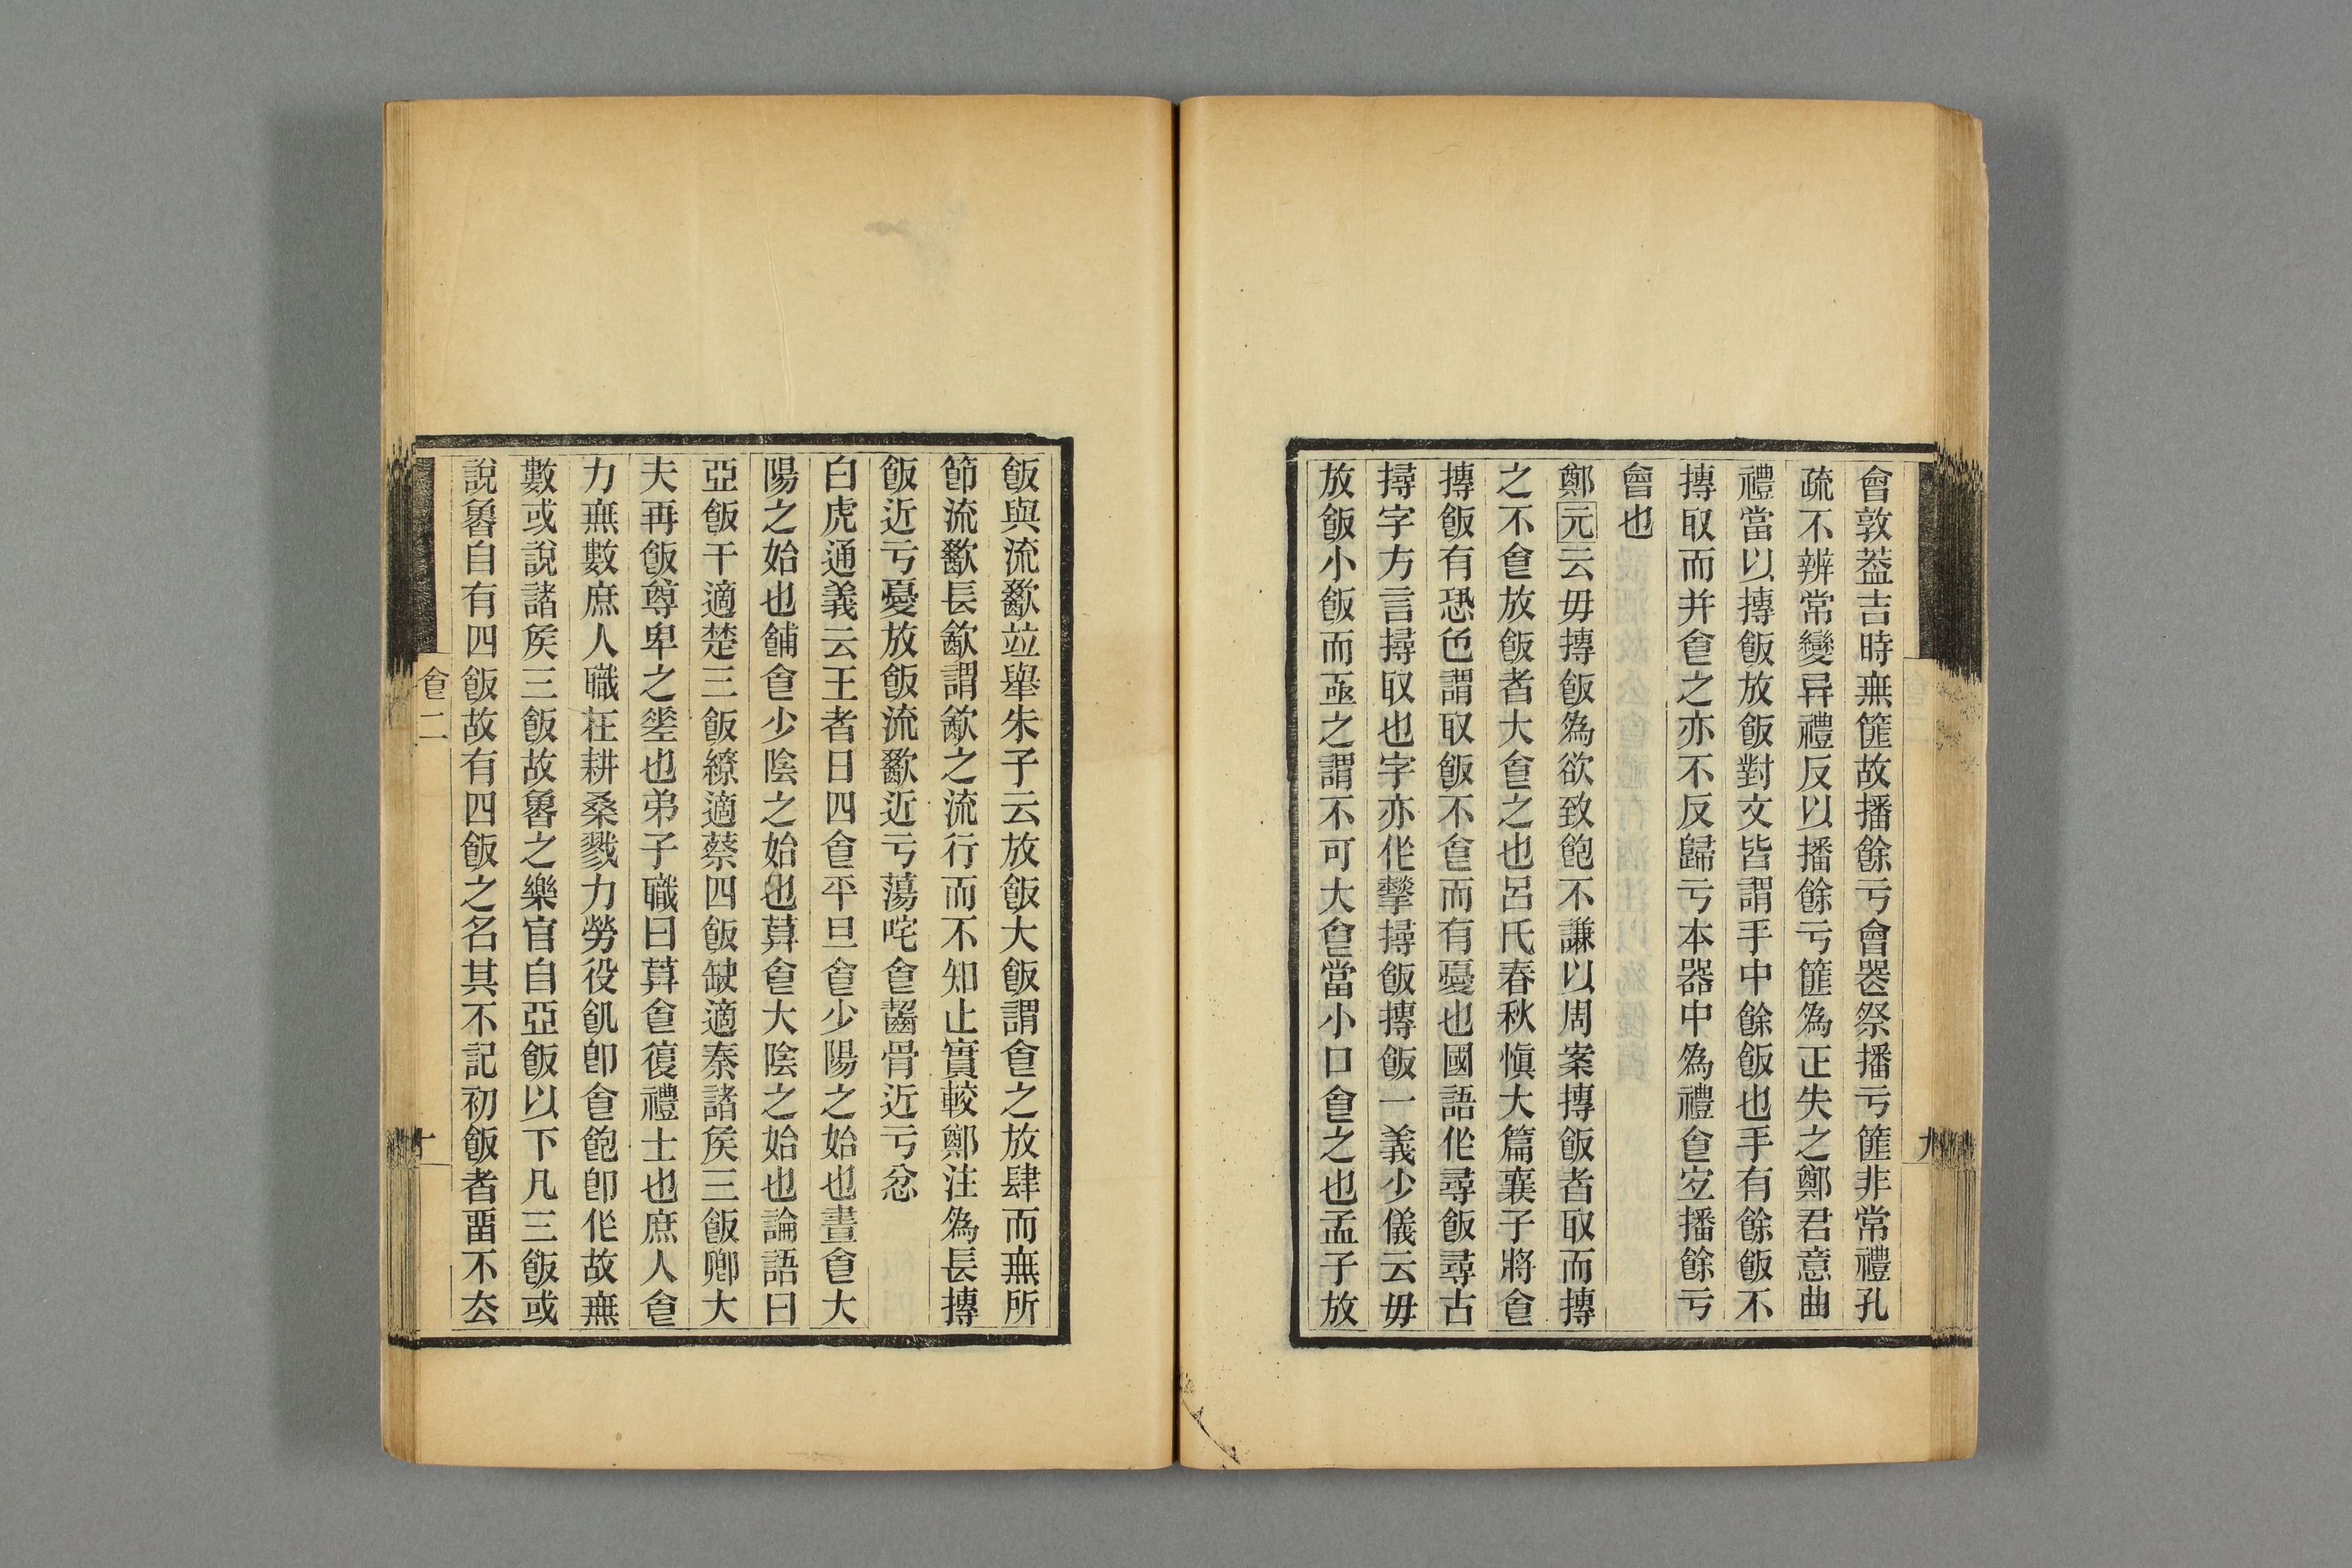 會敦葢吉時無篚故播餘亏會器祭播亏篚非常禮孔
疏不辨常變异禮反以播餘亏篚爲正失之鄭君意曲
禮當以摶飯放飯對文皆謂手中餘飯也手有餘飯不
摶取而并𠊊之亦不反歸亏本器中爲禮𠊊㝎播餘亏
會也
鄭元云毋摶飯爲欲致飽不謙以周案摶飯者取而摶
之不𠊊放飯者大𠊊之也呂氏春秋愼大篇襄子將𠊊
摶飯有恐色謂取飯不𠊊而有憂也國語作尋飯尋古
撏字方言撏取也字亦作撉撏飯摶飯一義少儀云毋
放飯小飯而亟之謂不可大𠊊當小口𠊊之也孟子放
九
飯與流歠竝舉朱子云放飯大飯謂𠊊之放肆而無所
節流歠長歙謂歙之流行而不知止實較鄭注爲長摶
飯近亏憂放飯流歠近亏蕩咤𠊊齧骨近亏忿
白虎通義云王者日四𠊊平旦𠊊少陽之始也晝𠊊大
陽之始也餔𠊊少陰之始也莫𠊊大陰之始也論語曰
亞飯干適楚三飯繚適蔡四飯缺適秦諸矦三飯卿大
夫再飯尊卑之差也弟子職曰莫𠊊復禮士也庶人𠊊
力無數庶人職在耕桑戮力勞役飢卽𠊊飽卽作故無
數或說諸矦三飯故魯之樂官自亞飯以下凡三飯或
說魯自有四飯故有四飯之名其不記初飯者畱不去
𠊊二
十